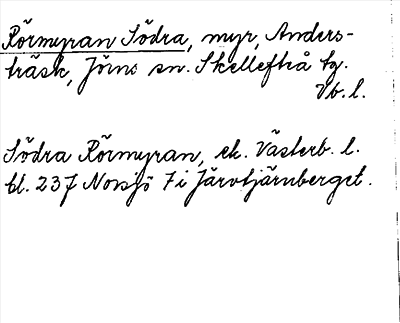 Rörmyran Södra, myr, Anders-
träsk, Jörns sn. Skellefteå tg.
Vb. l.
Södra Rörmyran, ek. Västerb. l.
bl. 237 Norsjö 7 i Järvtjärnberget.